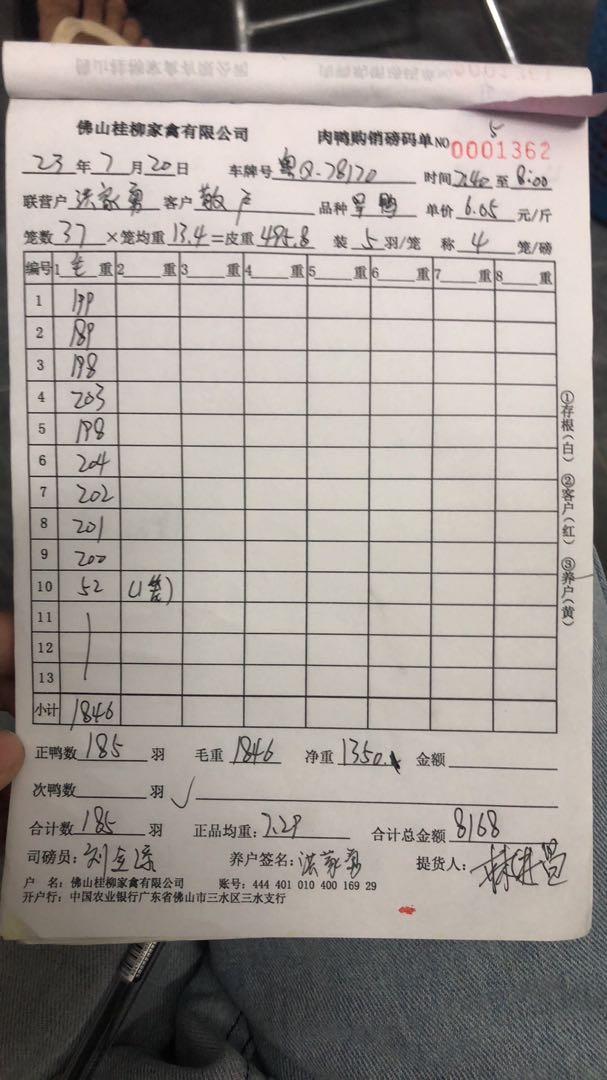 佛山桂柳家禽有限公司 肉鸭购销磅码单 NO 0001362
5
23年7月20日 车牌号 粤Q·78170 时间7.40至8:00
联营户 洪家勇 客户 品种 旱鸭 单价 6.05 元/斤
笼数 37 ×笼均重 13.4=皮重 495.8 装 5 羽/笼 称 4 笼/磅
编号 1 毛 重 2 重 3 重 4 重 5 重 6 重 7 重 8 重
1 199
2 189
3 198
4 203
5 198
6 204
7 202
8 201
9 200
10 52 (1笼)
11
12
13
小计 1846
①存根(白) ②客户(红) ③养户(黄)
正鸭数 185 羽 毛重 1846 净重 1350. 金额
次鸭数 羽
合计数 185 羽 正品均重: 7.29 合计总金额 8168
司磅员: 养户签名: 洪家勇 提货人:
户 名: 佛山桂柳家禽有限公司 账号: 444 401 010 400 169 29
开户行: 中国农业银行广东省佛山市三水区三水支行